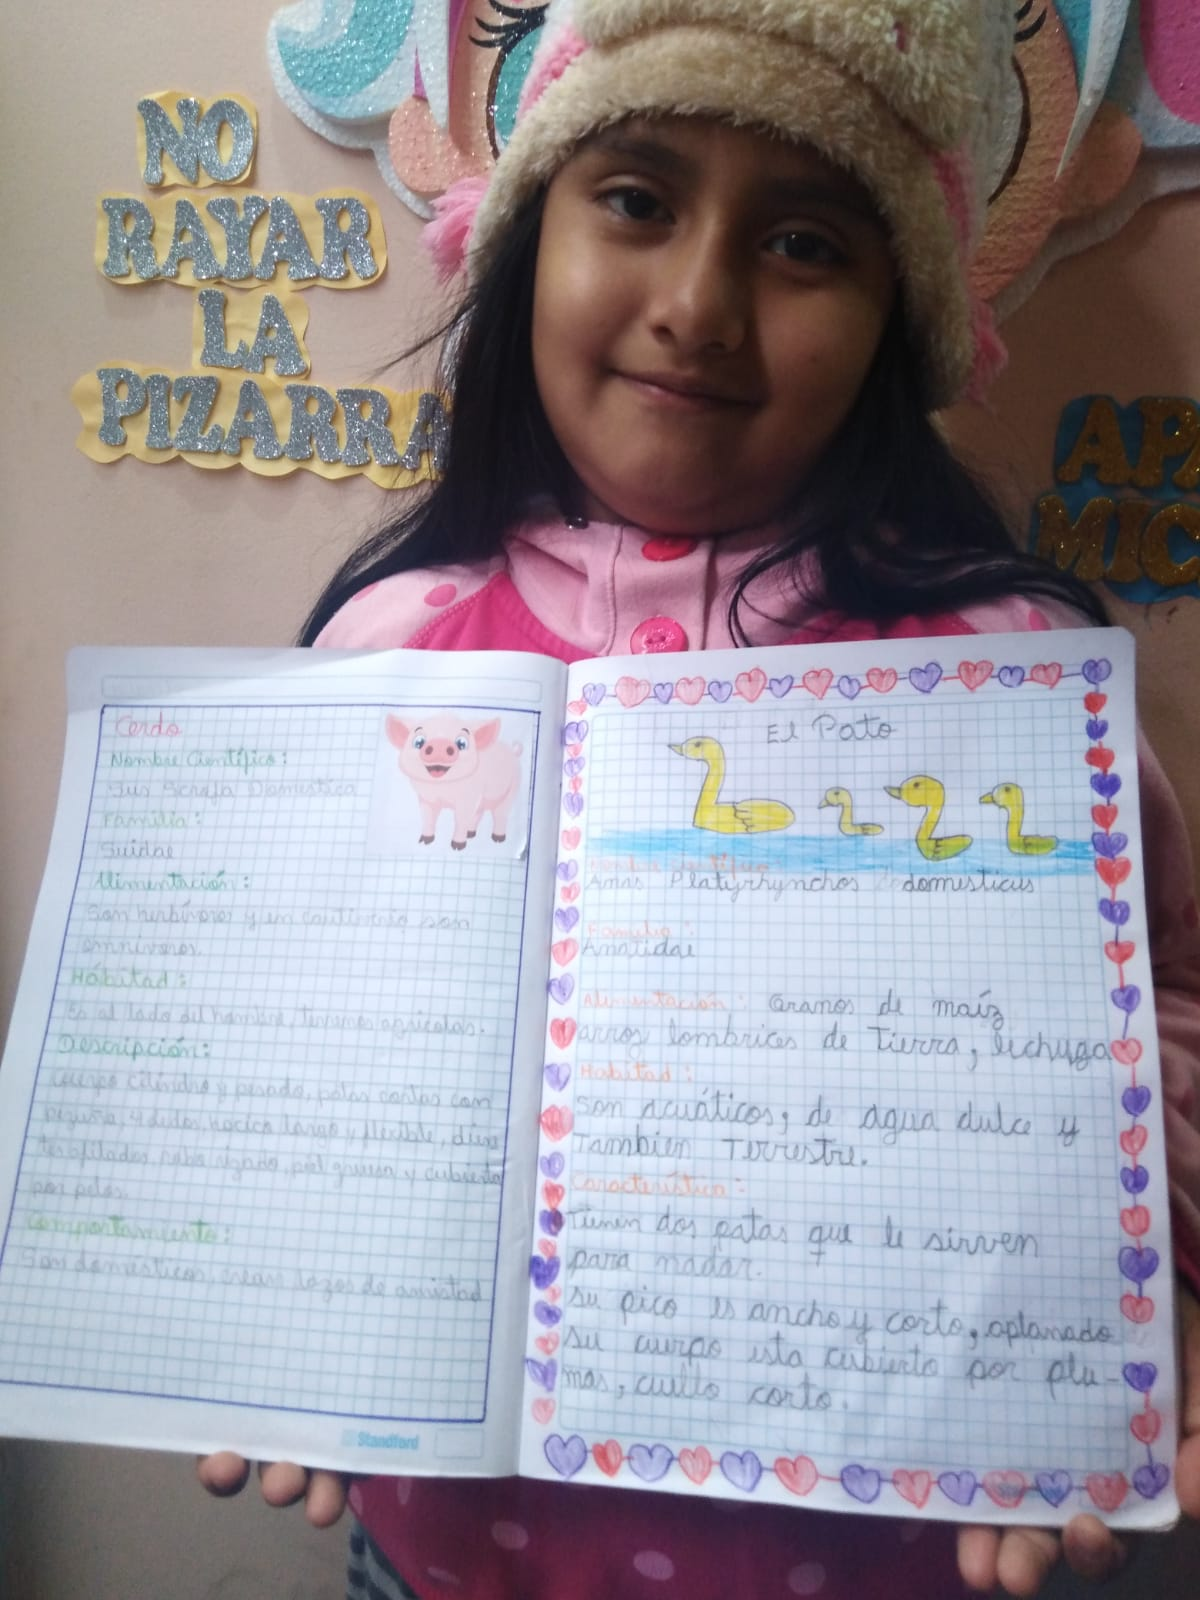 NO
RAYAR
LA
PIZARRA
APA
MIC
Cerdo
Nombre Científico:
Sus Scrofa Domestica
Familia:
Suidae
Alimentación:
Son herbívoros y en cautiverio son
omnívoros.
Hábitad:
Es al lado del hombre, terrenos agrícolas.
Descripción:
Cuerpo cilindro y pesado, patas cortas con
pezuña, 4 dedos, hocico largo y flexible, dien
tes afilados, rabo rizado, piel gruesa y cubierta
por pelos.
Comportamiento:
Son domésticos, crean lazos de amistad
Standford
El Pato
Nombre Científico:
Anas Platyrhynchos domesticus
Familia:
Anatidae
Alimentación: Granos de maíz
arroz lombrices de Tierra, lechuga
Habitad:
Son acuáticos, de agua dulce y
Tambien Terrestre.
Característica:
Tienen dos patas que le sirven
para nadar.
Su pico es ancho y corto, aplanado
su cuerpo esta cubierto por plu-
mas, cuello corto.